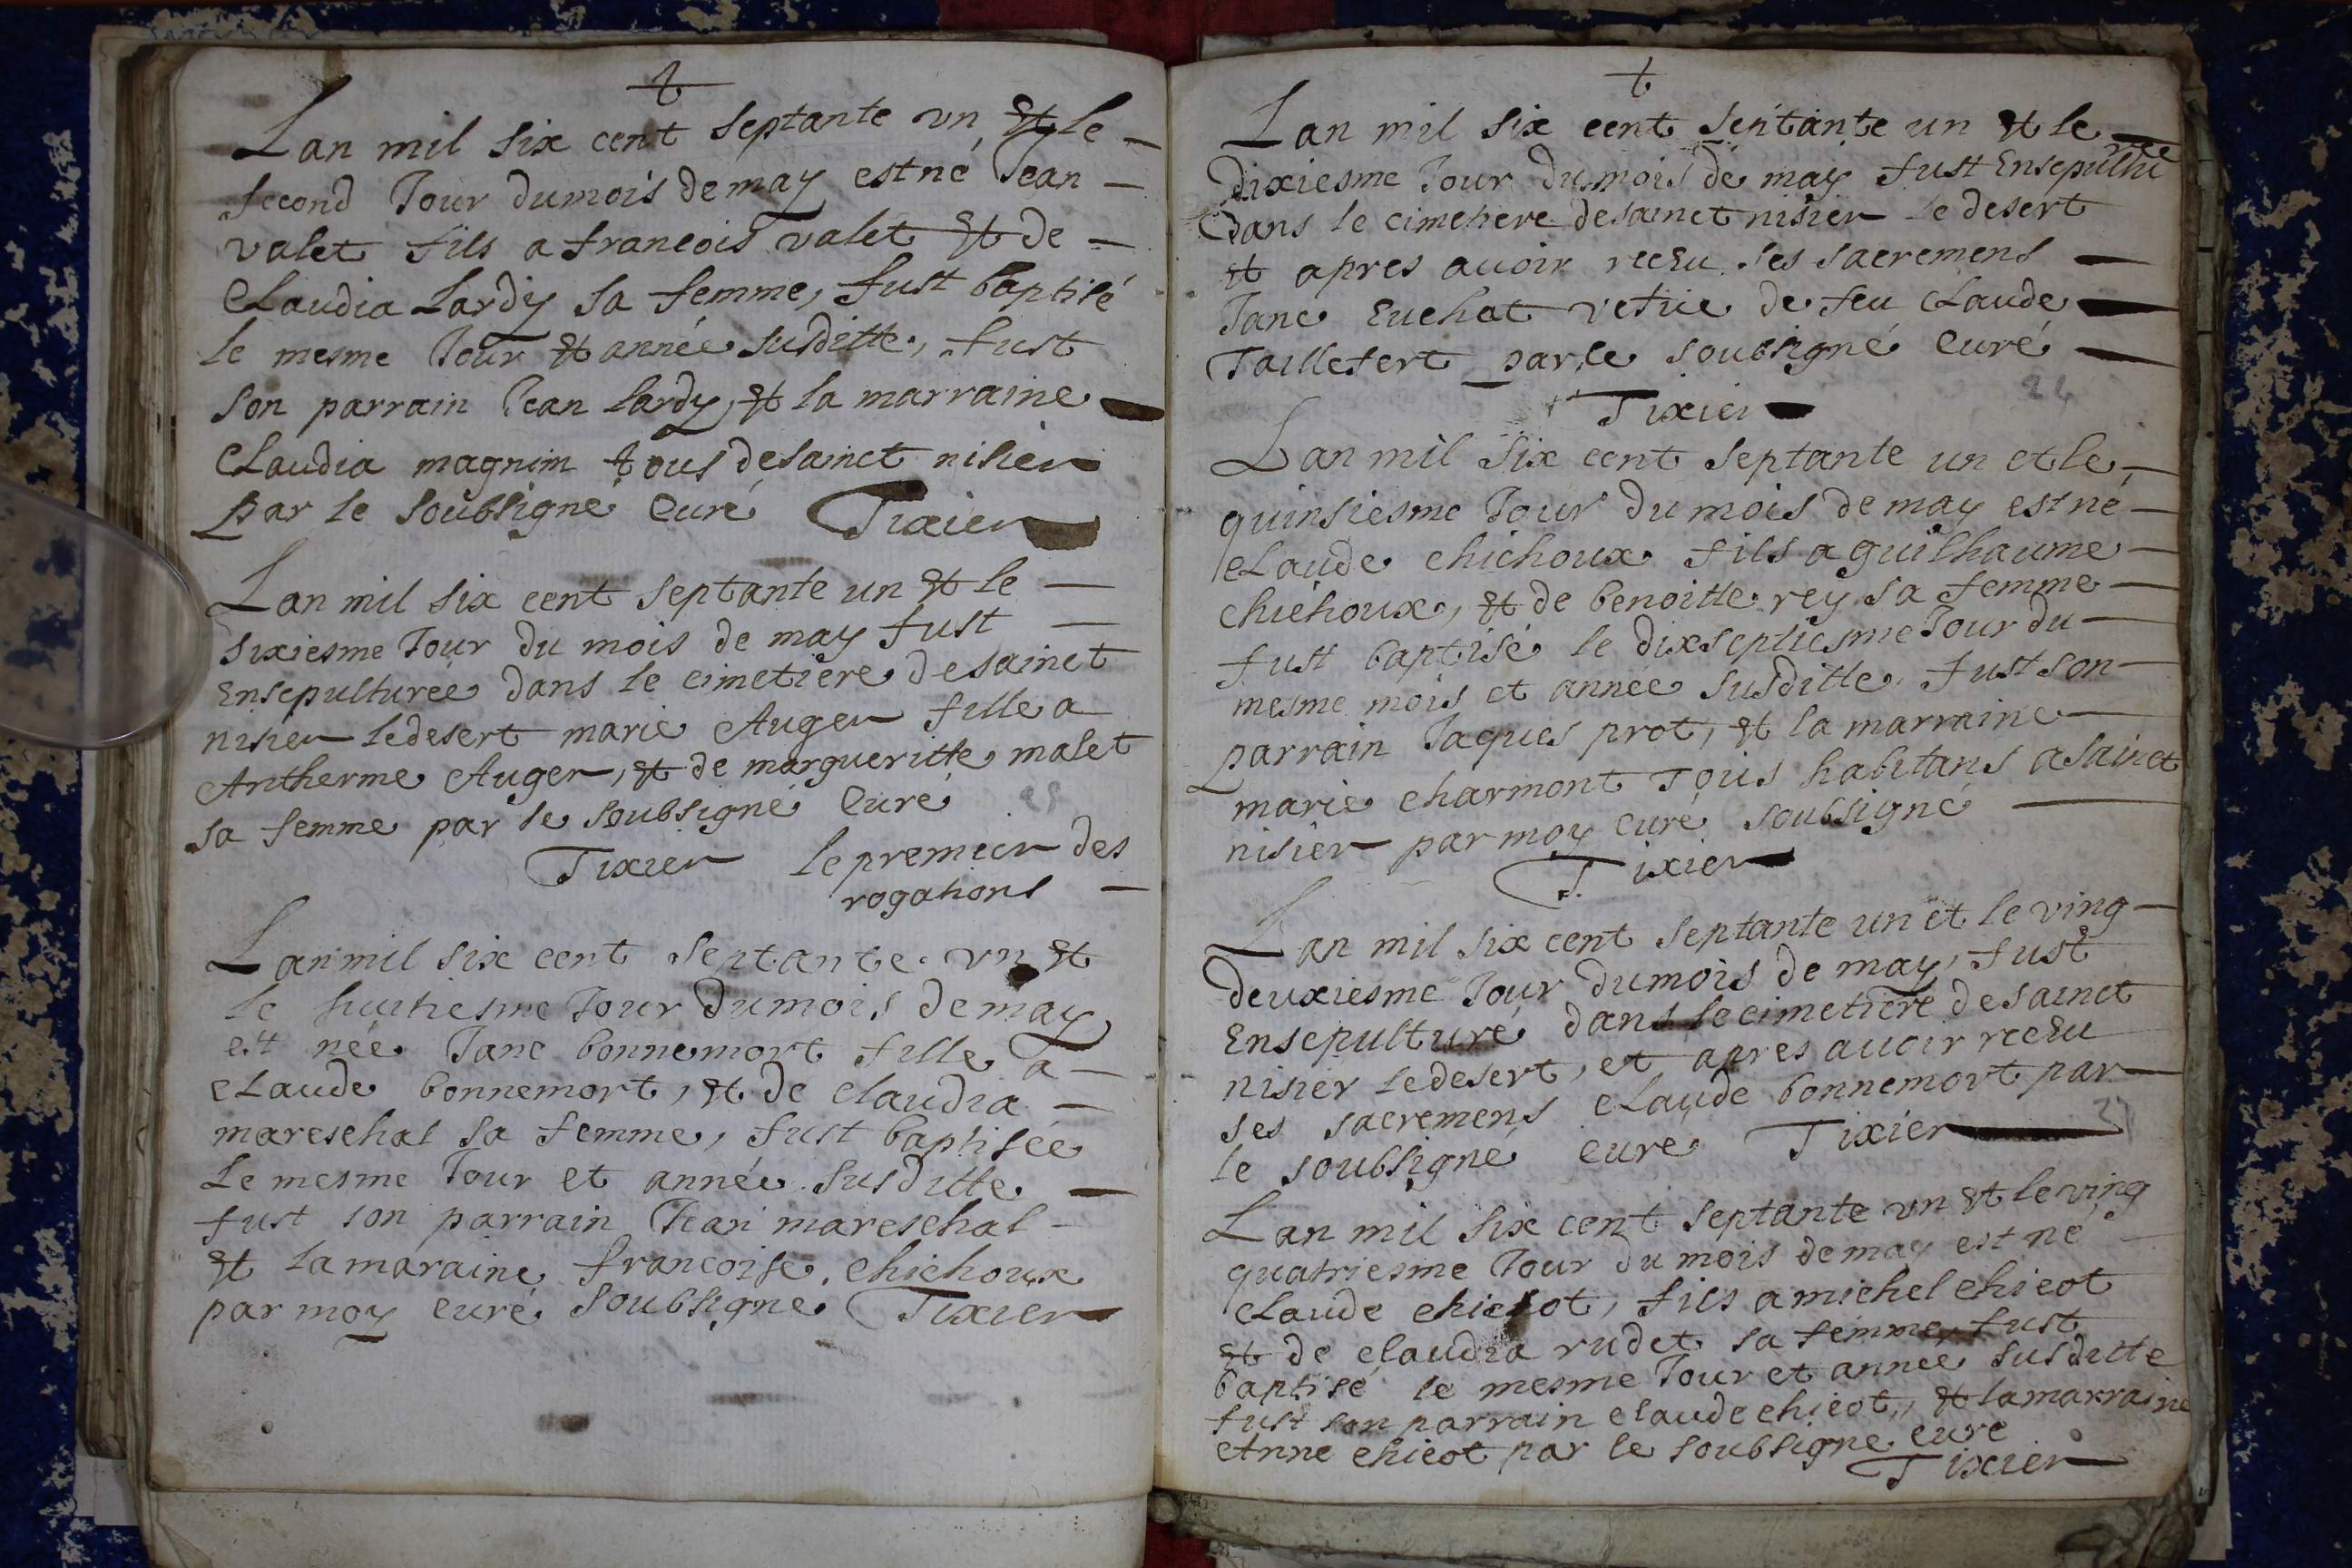 Lan mil six cent septante vn Et le
second Jour du mois de may est né Jean
valet fils a francois valet Et de
Claudia Lardy sa femme, fust baptisé
le mesme Jour Et année susditte, fust
son parrain Jean Lardy, Et la marraine
Claudia magnin tous de sainct nisier
par le soubsigné Curé Tixier
Lan mil six cent septante un Et le
sixiesme Jour du mois de may fust
Ensepulturée dans le cimetiere de sainct
nisier le desert marie Auger fille a
Antherme Auger, Et de margueritte malet
sa femme par le soubsigné Curé
25
Tixier le premier des
rogations
Lan mil six cent septante vn Et
le huitiesme Jour du mois de may
est née Jane bonnemort fille a
claude bonnemort, Et de claudia
mareschal sa femme, fust baptisée
Le mesme Jour et année susditte
fust son parrain Jean mareschal
Et la maraine francoise chichoux
par moy curé soubsigné Tixier
Lan mil six cent septante un Et le
dixiesme Jour du mois de may fust Ensepulturee
dans le cimetiere de sainct nisier le desert
Et apres auoir receu ses sacremens
Jane Euchat vefue de feu Claude
Taillefert par le soubsigné Curé
Tixier
24
Lan mil six cent septante un et le
quinsiesme Jour du mois de may est né
claude chichoux fils a guilhaume
chichoux, Et de benoitte rey sa femme
fust baptisé le dixseptiesme Jour du
mesme mois et année susditte, fust son
parrain Jaques prot, Et la marraine
marie charmont Tous habitans a sainct
nisier par moy curé soubsigné
Tixier
Lan mil six cent septante un et le ving
deuxiesme Jour du mois de may, fust
Ensepulturé dans le cimetiere de sainct
nisier le desert, et apres auoir receu
ses sacremens claude bonnemort par
le soubsigné curé Tixier
Lan mil six cent septante vn Et le ving
quatriesme Jour du mois de may est né
claude chicot, fils a michel chicot
Et de claudia rudet sa femme, fust
baptisé le mesme Jour et année susditte
fust son parrain claude chicot, Et la marraine
Anne chicot par le soubsigné curé
Tixier